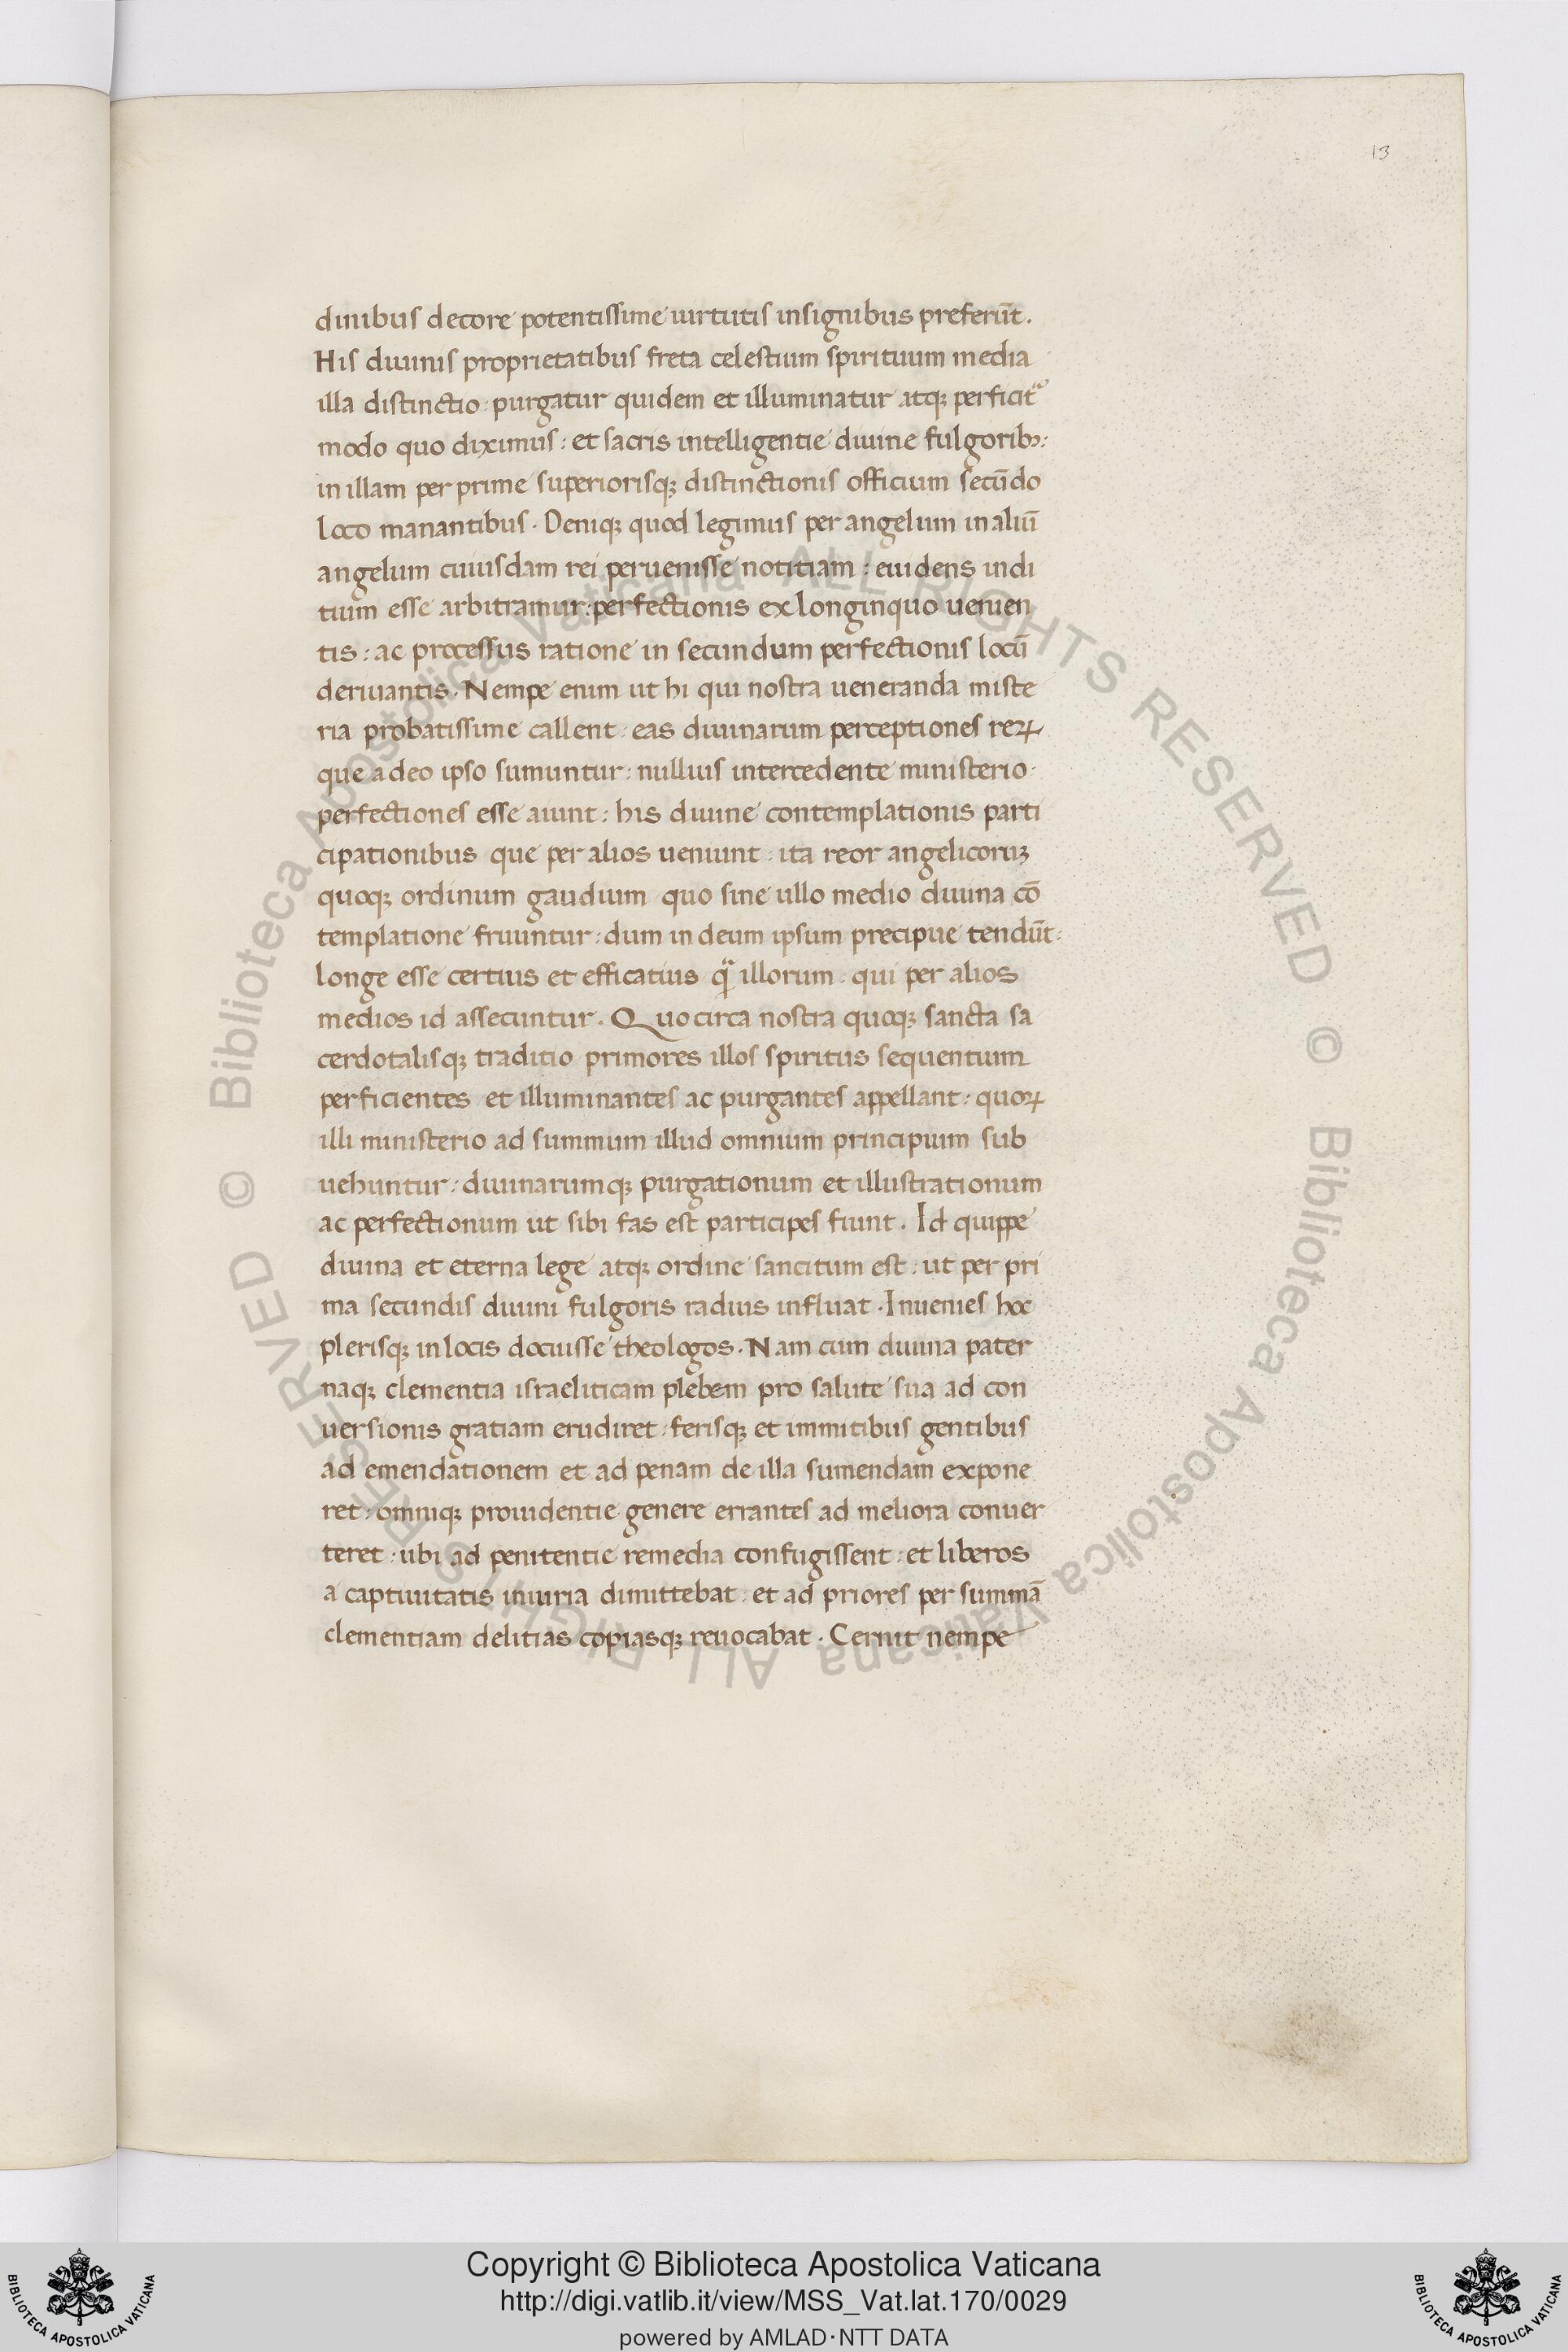 13
dinibus decore potentissime uirtutis insignibus preferūt.
His diuinis proprietatibus freta celestium spirituum media
illa distinctio: purgatur quidem et illuminatur atqꝫ perficit᷑
modo quo diximus: et sacris intelligentie diuine fulgoribꝰ:
in illam per prime superiorisqꝫ distinctionis officium secūdo
loco manantibus. Deniqꝫ quod legimus per angelum in aliū
angelum cuiusdam rei peruenisse notitiam: euidens indi
tium esse arbitramur: perfectionis ex longinquo uenien
tis: ac processus ratione in secundum perfectionis locū
deriuantis. Nempe enim ut hi qui nostra ueneranda miste
ria probatissime callent: eas diuinarum perceptiones reꝝ
que a deo ipso sumuntur: nullius intercedente ministerio.
perfectiones esse aiunt: his diuine contemplationis parti
cipationibus que per alios ueniunt: ita reor angelicoruꝫ
quoqꝫ ordinum gaudium quo sine ullo medio diuina cō
templatione fruuntur: dum in deum ipsum precipue tendūt:
longe esse certius et efficatius qᷓ illorum: qui per alios
medios id assecuntur. Quocirca nostra quoqꝫ sancta sa
cerdotalisqꝫ traditio primores illos spiritus sequentium
perficientes et illuminantes ac purgantes appellant: quoꝝ
illi ministerio ad summum illud omnium principium sub
uehuntur: diuinarumqꝫ purgationum et illustrationum
ac perfectionum ut sibi fas est participes fiunt. Id quippe
diuina et eterna lege atqꝫ ordine sancitum est: ut per pri
ma secundis diuini fulgoris radius influat. Inuenies hoc
plerisqꝫ in locis docuisse theologos. Nam cum diuina pater
naqꝫ clementia israeliticam plebem pro salute sua ad con
uersionis gratiam erudiret: ferisqꝫ et immitibus gentibus
ad emendationem et ad penam de illa sumendam expone
ret: omniqꝫ prouidentie genere errantes ad meliora conuer
teret: ubi ad penitentie remedia confugissent: et liberos
a captiuitatis iniuria dimittebat: et ad priores per summā
clementiam delitias copiasqꝫ reuocabat. Cernit nempe
© Biblioteca Apostolica Vaticana ALL RIGHTS RESERVED
© Biblioteca Apostolica Vaticana ALL RIGHTS RESERVED
BIBLIOTECA APOSTOLICA VATICANA
Copyright © Biblioteca Apostolica Vaticana
http://digi.vatlib.it/view/MSS_Vat.lat.170/0029
powered by AMLAD·NTT DATA
BIBLIOTECA APOSTOLICA VATICANA